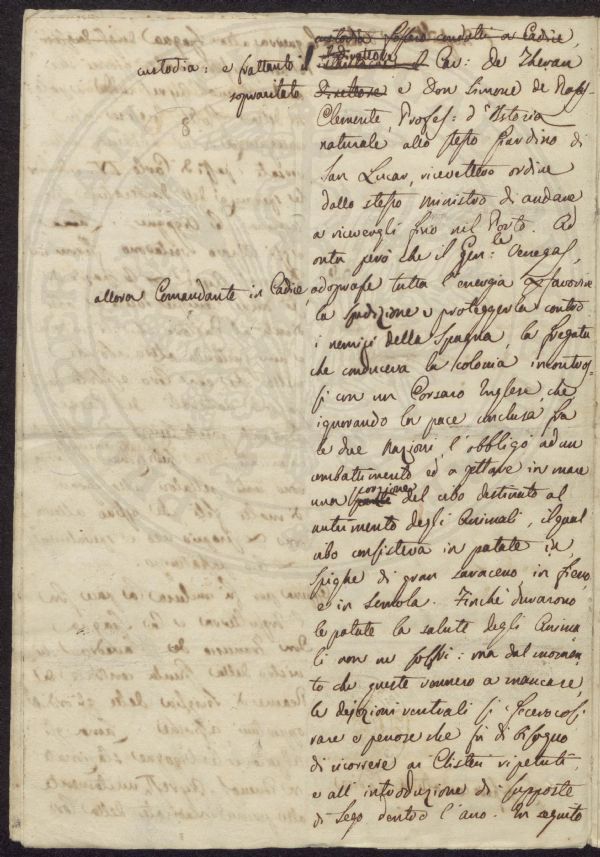 custodia fossero condotti a Cadice,
custodia: e frattanto il
Direttore
Cav: de Theran
sopracitato
Direttore e Don Simone de Roxas
Clemente, Profess: d'Istoria
naturale allo stesso Giardino di
San Lucar, ricevettero ordine
dallo stesso ministro di andare
a ricevergli fino nel Porto. Ad
onta però che il Gen: la Venegas,
allora Comandante in Cadice, adoprasse tutta l'energia a favorire
la spedizione e proteggerla contro
i nemici della Spagna, la fregata
che conduceva la colonia incontros=
si con un Corsaro Inglese, che
ignorando la pace conclusa fra
le due Nazioni, l'obbligò ad un
combattimento ed a gettare in mare
una parte porzione del cibo destinato al
nutrimento degli Animali, il qual
cibo consisteva in patate in
spighe di gran saraceno, in fieno,
e in semola. Finchè durarono
le patate la salute degli Anima=
li non ne soffrì: ma dal momen=
to che queste vennero a mancare,
le dejezioni ventrali si fecero così
rare e penose che fu di bisogno
di ricorrere ai Clisteri ripetuti,
e all'introduzione di supposte
di Sego dentro l'ano. In seguito